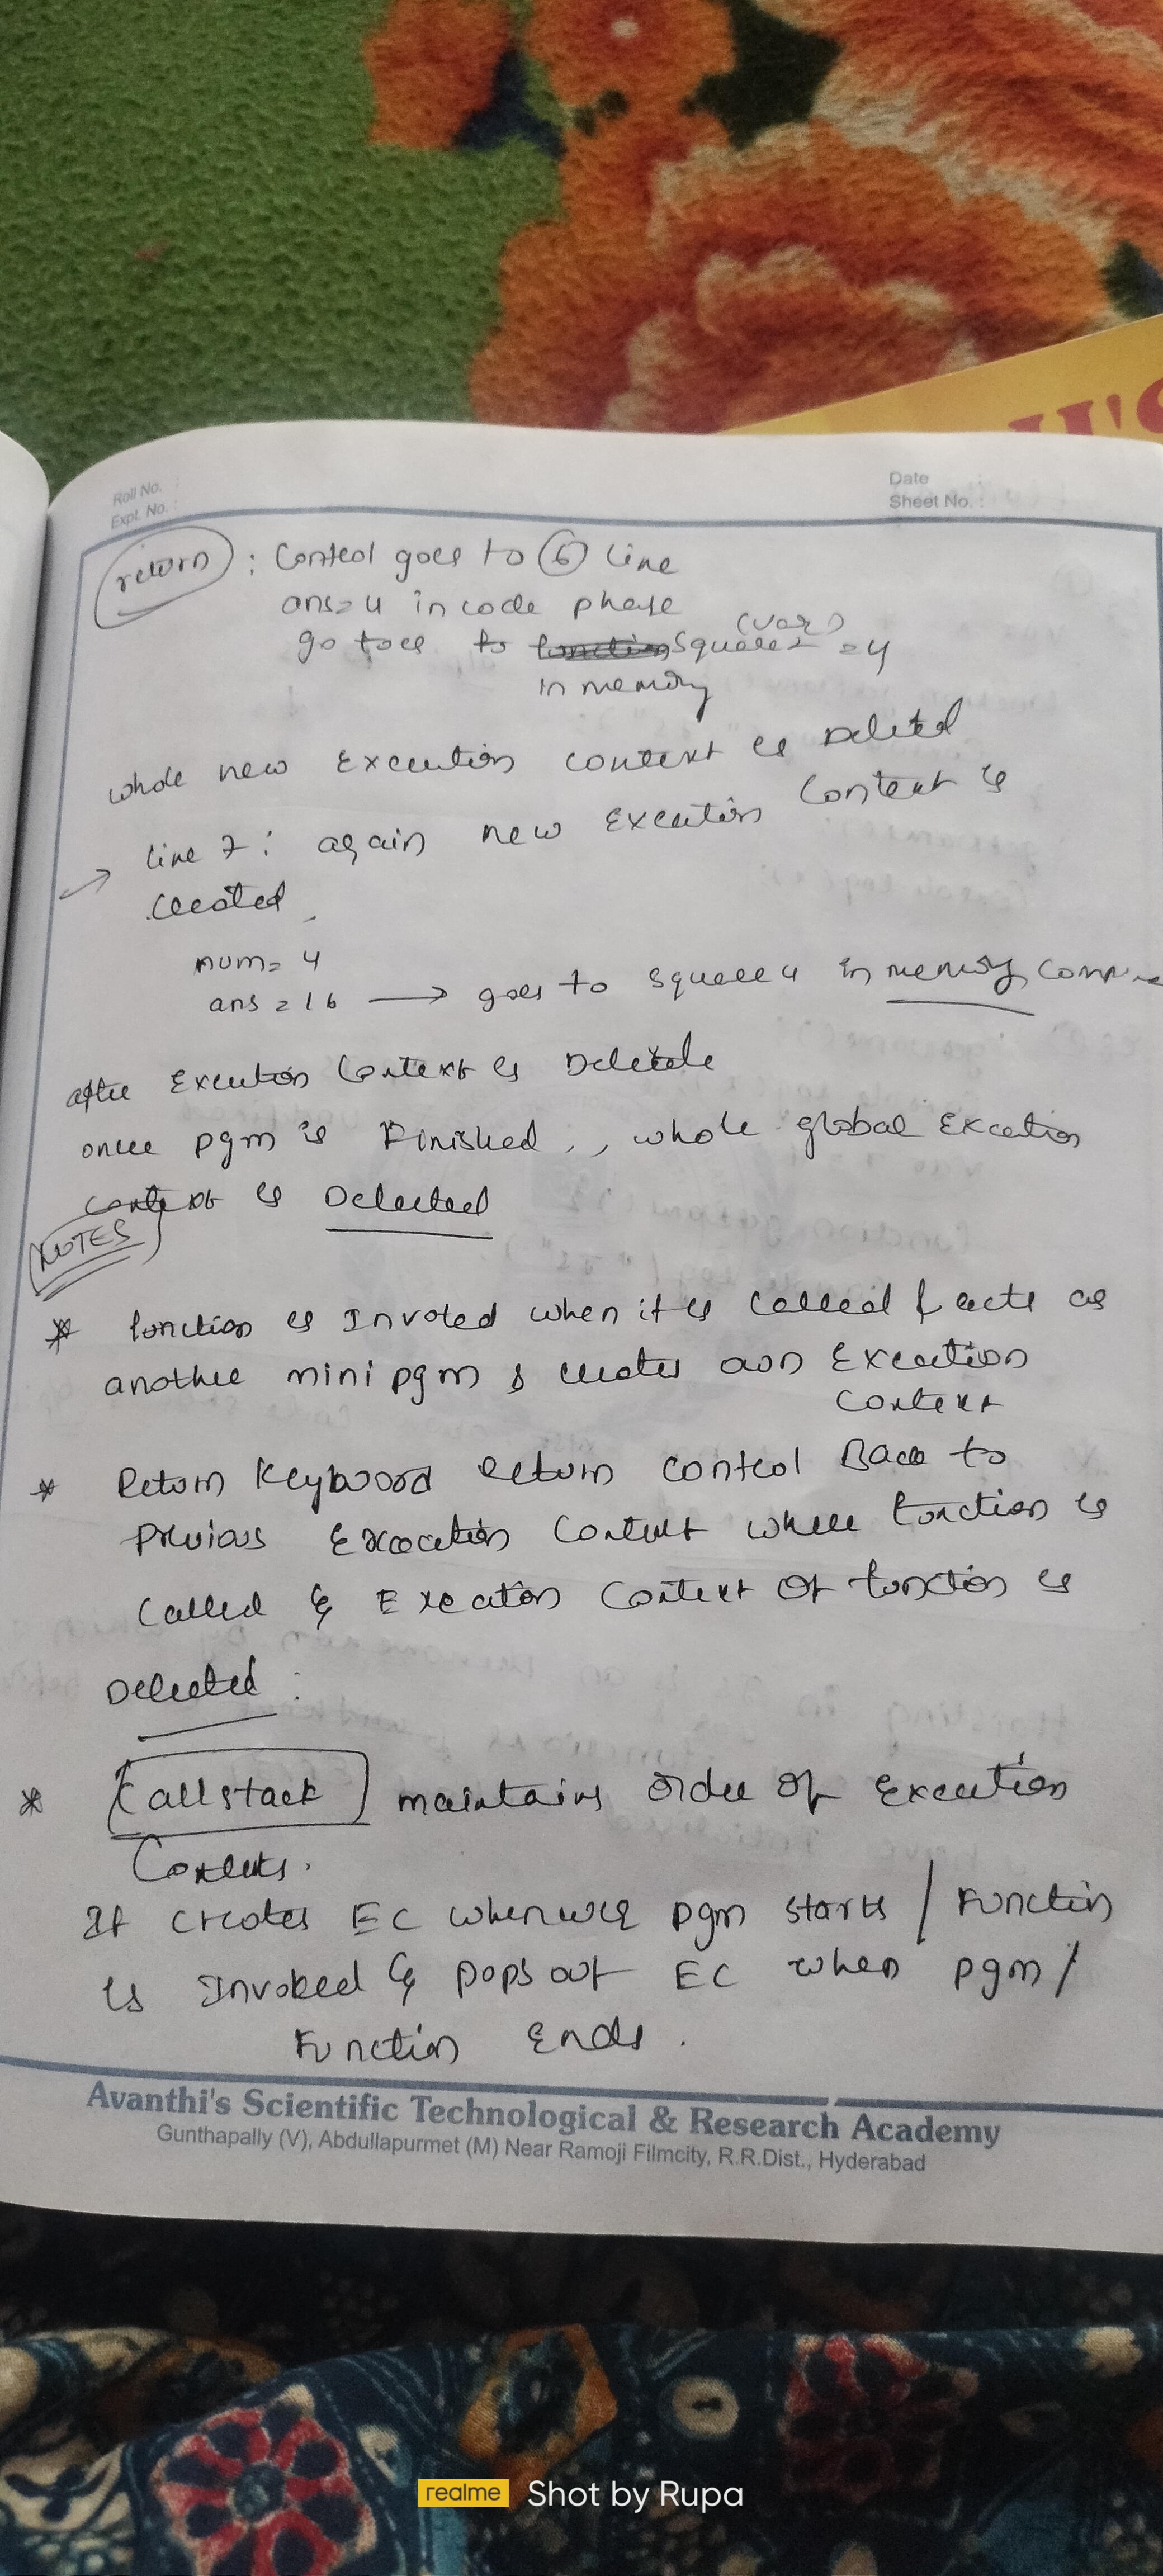 H'S
Roll No. :
Expt. No. :
Date
Sheet No. :
return : Control goes to 6 line
ans=4 in code phase
(var)
go to to square2 = 4
in memory
whole new Execution context is Deleted
→ line 7: again new Execution Context is
created
num= 4
ans = 16 → goes to square4 in memory
after Execution Context is Delete
once pgm is Finished, , whole global Execution
context is Deleted
NOTES
* function is Invoked when it is called & acts as
another mini pgm & creates own Execution
Context
* Return Keyword return control Back to
Previous Execution Context where function is
Called & Execution Context Of function is
Deleted :
* Callstack maintains order of execution
Contexts.
It creates EC whenever pgm starts / Function
is Invoked & pops out EC when pgm /
Function Ends .
Avanthi's Scientific Technological & Research Academy
Gunthapally (V), Abdullapurmet (M) Near Ramoji Filmcity, R.R.Dist., Hyderabad
realme Shot by Rupa